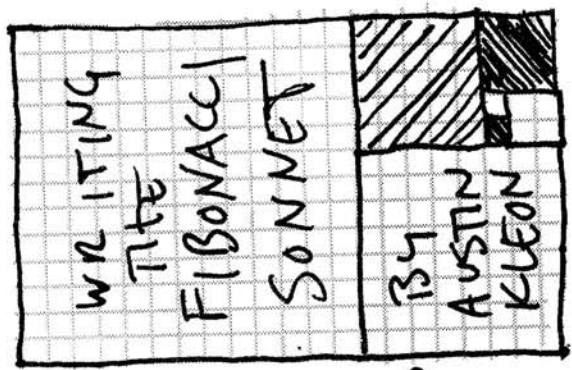 WRITING
THE
FIBONACCI
SONNET
BY
AUSTIN
KLEON